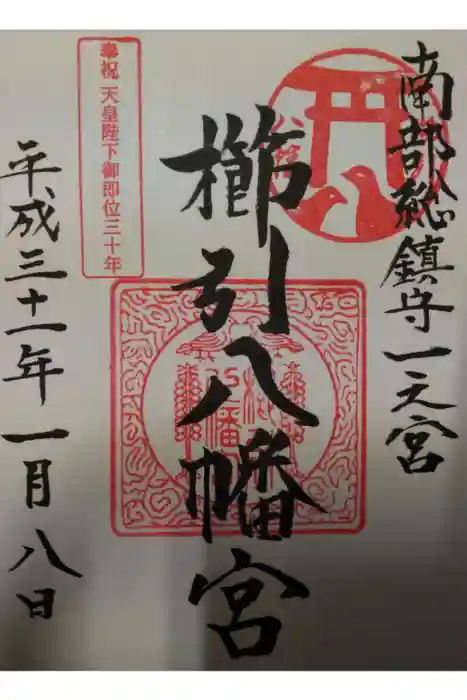 南部総鎮守一之宮
奉祝 天皇陛下御即位三十年
櫛引八幡宮
平成三十一年一月八日